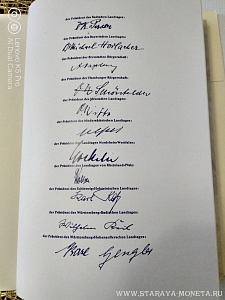 der Präsident des Badischen Landtages:
der Präsident des Bayerischen Landtages:
Dr Michael Horlacher
der Präsident der Bremischen Bürgerschaft:
der Präsident der Hamburger Bürgerschaft:
der Präsident des Hessischen Landtages:
O. Witte
der Präsident des Niedersächsischen Landtages:
der Präsident des Landtages Nordrhein/Westfalen:
der Präsident des Landtages von Rheinland/Pfalz:
der Präsident des Schleswig/Holsteinischen Landtages:
Karl
der Präsident des Württemberg/Badischen Landtages:
Wilhelm
der Präsident des Württemberg/Hohenzollernschen Landtages:
Karl Gengler
Lenovo K5 Pro
AI Dual Camera
WWW.STARAYA-MONETA.RU